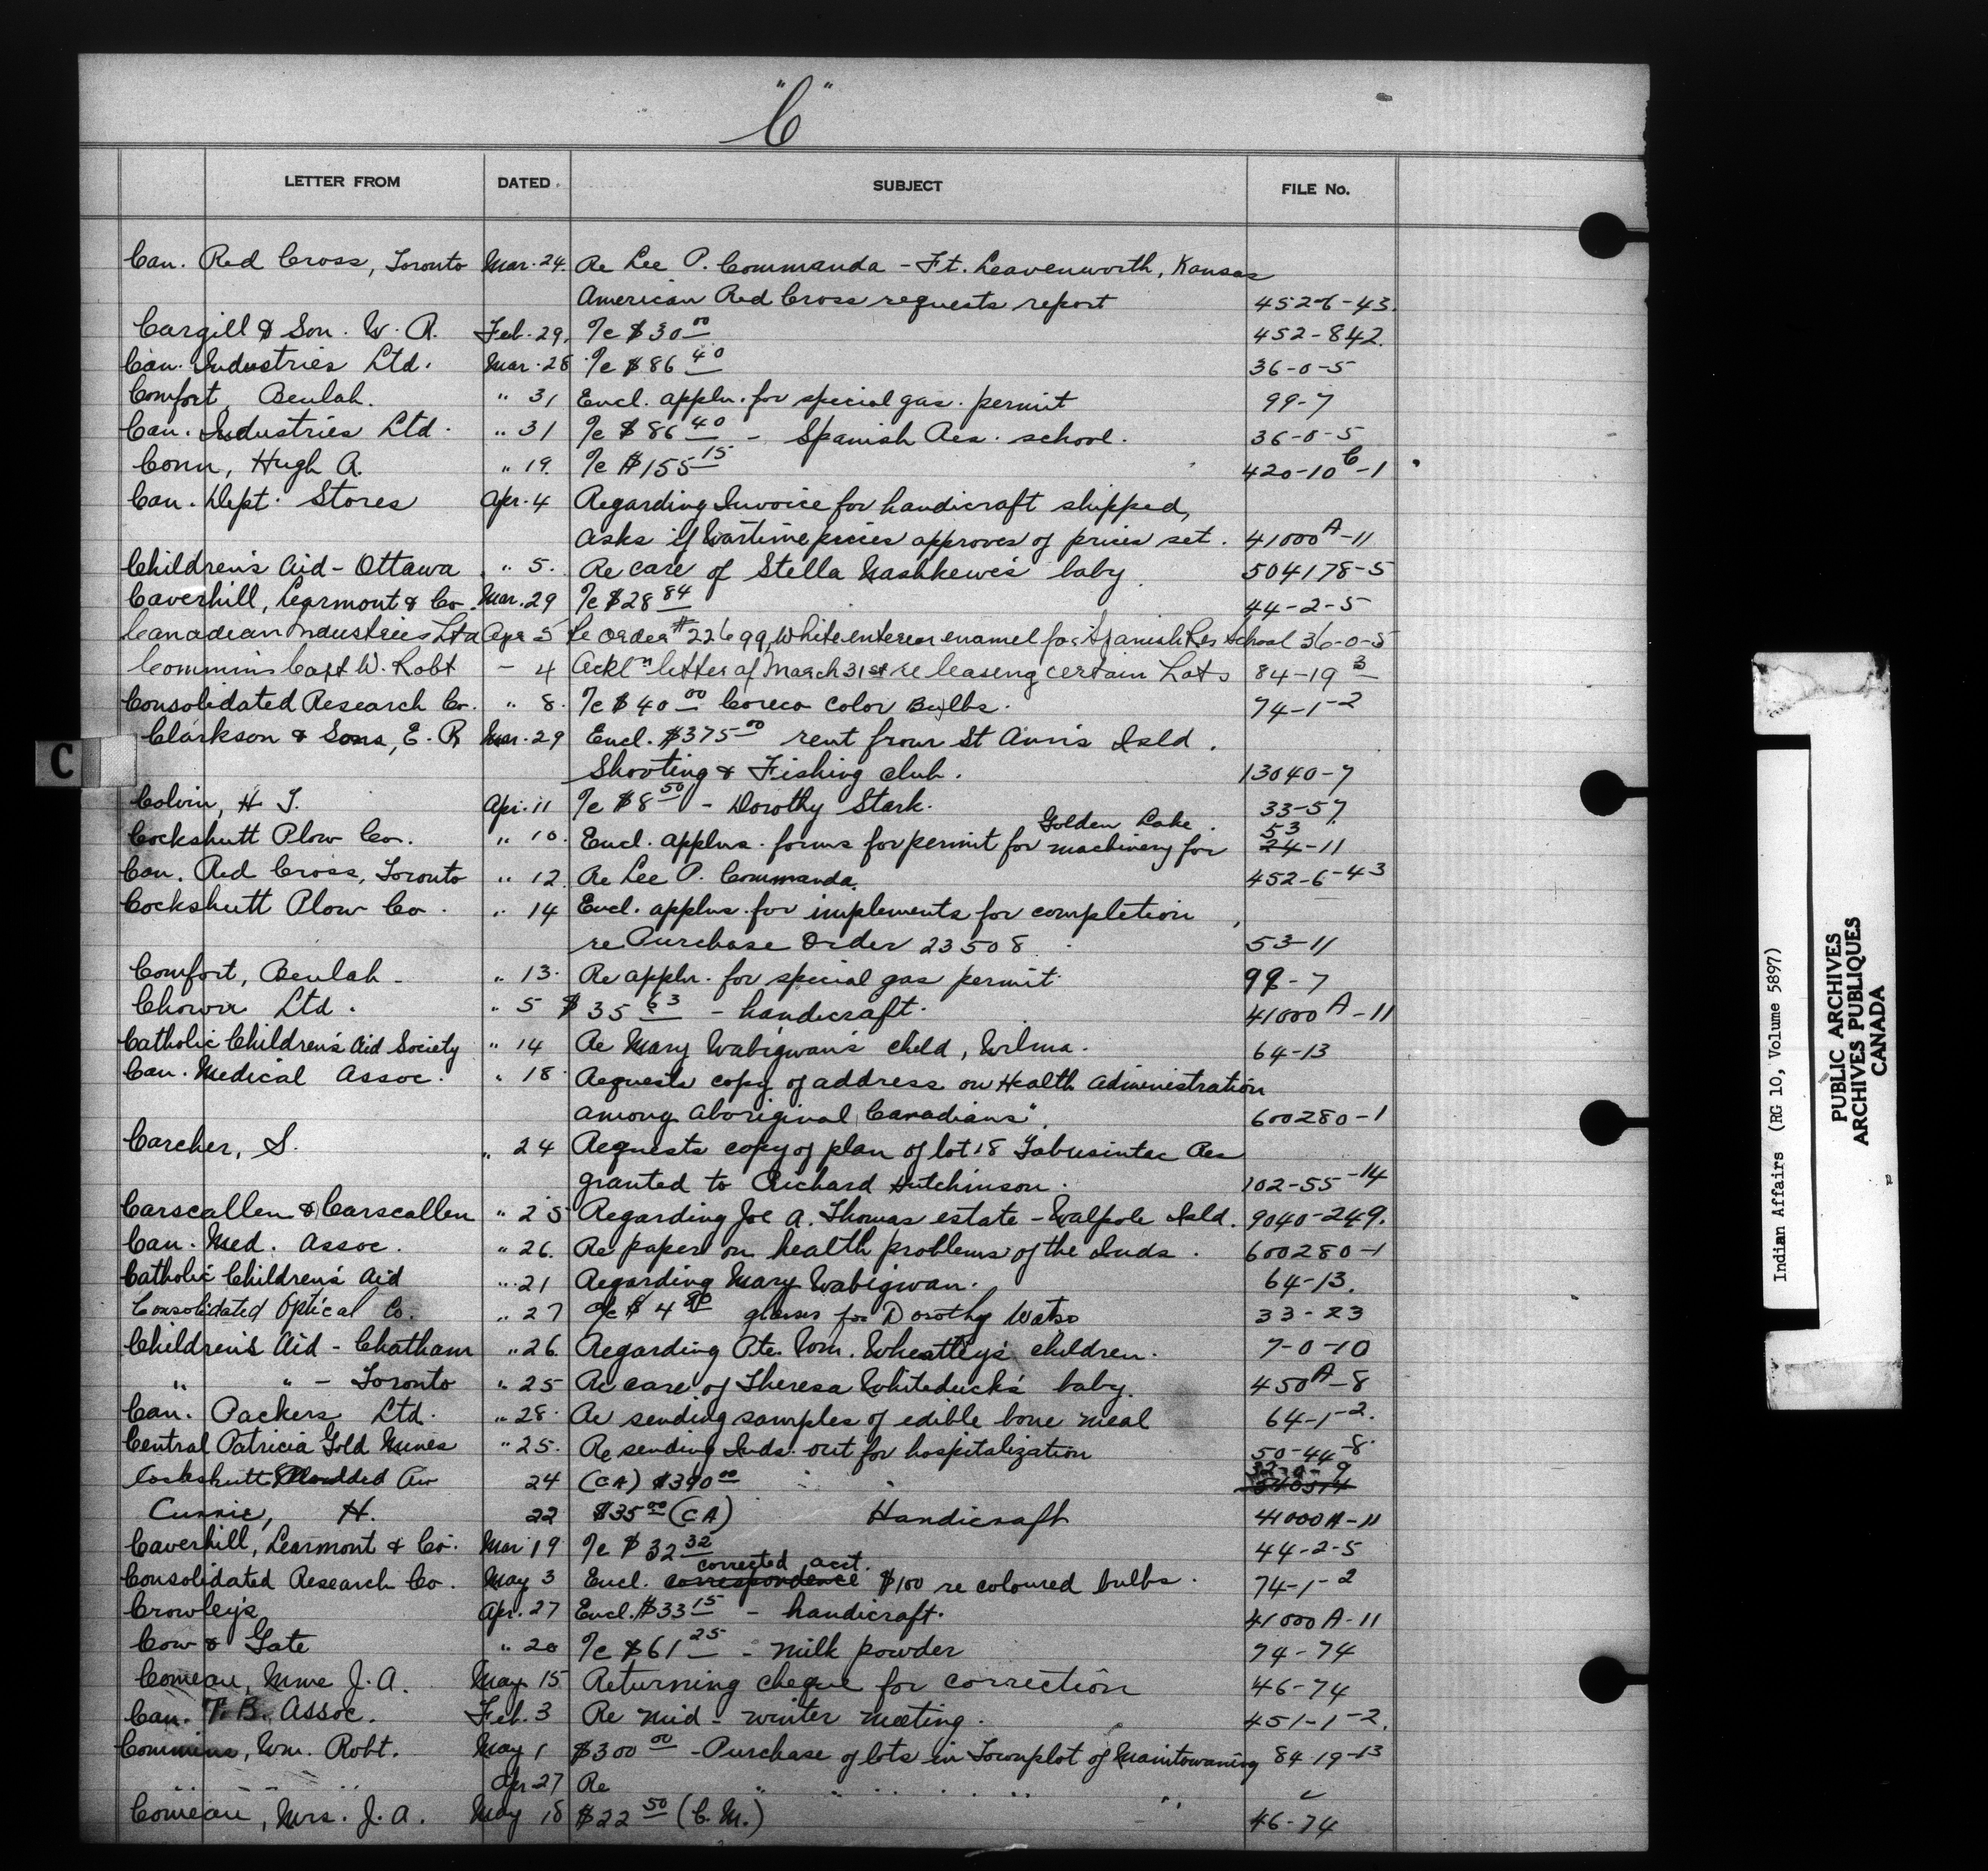 "C"
LETTER FROM DATED SUBJECT FILE No.
Can. Red Cross, Toronto Mar. 24. Re Lee P. Commanda - Ft. Leavenworth, Kansas
American Red Cross requests report 452-6-43.
Cargill & Son. W. R. Feb. 29, I/c $30 00 452-842.
Can. Industries Ltd. Mar. 28 I/c $86 40 36-0-5
Comfort, Beulah. " 31 Encl. appln. for special gas. permit 99-7
Can. Industries Ltd. " 31 I/c $86 40 - Spanish Res. school. 36-0-5
Conn, Hugh A. " 19. I/c $155 15 420-10 C-1
Can. Dept. Stores Apr. 4 Regarding Invoice for handicraft shipped,
asks if Wartime prices approves of prices set. 41000 A-11
Children's Aid - Ottawa " 5. Re care of Stella Nashkewe's baby 504178-5
Caverhill, Learmont & Co. Mar. 29 I/c $28 84 44-2-5
Canadian Industries Ltd Apr 5 Re Order # 22699, White enterior enamel for Spanish Res School 36-0-5
Commins Capt W. Robt - 4 Ackl n letter of March 31st re leasing certain Lots 84-19 3
Consolidated Research Co. " 8. I/c $40 00 Coreco Color Bulbs. 74-1-2
Clarkson & Sons, E. R. Mar. 29 Encl. $375 00 rent from St Ann's Isld.
Shooting & Fishing club. 13040-7
Colvin, H. T. Apr. 11 I/c $8 50 - Dorothy Stark. 33-57
Golden Lake. 53
Cockshutt Plow Co. " 10. Encl. applns. forms for permit for machinery for 24-11
Can. Red Cross, Toronto " 12. Re Lee P. Commanda. 452-6-43
Cockshutt Plow Co. " 14 Encl. applns. for implements for completion
re Purchase Order 23508. 53-11
Comfort, Beulah - " 13. Re appln. for special gas permit 99-7
Chown Ltd. " 5 $35 63 - handicraft. 41000 A-11
Catholic Children's Aid Society " 14 Re Mary Wabigwan's child, Wilma. 64-13
Can. Medical Assoc. " 18. Requests copy of address on Health Administration
among Aboriginal Canadians". 600280-1
Carcher, S. " 24 Requests copy of plan of lot 18 Tabusintac Res
granted to Richard Hutchinson. 102-55-14
Carscallen & Carscallen " 25 Regarding Joe A. Thomas estate - Walpole Isld. 9040-249.
Can. Med. Assoc. " 26. Re paper on health problems of the Inds. 600280-1
Catholic Children's Aid " 21 Regarding Mary Wabigwan. 64-13.
Consolidated Optical Co. " 27 I/c $4 glasses for Dorothy 33-23
Children's Aid - Chatham " 26 Regarding Pte. Wm. Wheatley's children. 7-0-10
" " - Toronto " 25 Re care of Theresa Whiteduck's baby. 450 A-8
Can. Packers Ltd. " 28. Re sending samples of edible bone meal 64-1-2.
Central Patricia Gold Mines " 25. Re sending Inds. out for hospitalization 50-44-8.
Cockshutt 24 (CA) $390 00
Currie, H. 22 $35 00 (CA) Handicraft 41000 A-11
Caverhill, Learmont & Co. Mar 19 I/c $32 32 44-2-5
corrected acct.
Consolidated Research Co. May 3 Encl. correspondence $100 re coloured bulbs. 74-1-2
Crowley's Apr. 27 Encl. $33 15 - handicraft. 41000 A-11
Cow & Gate " 20 I/c $61 25 - milk powder 74-74
Comeau, Mme J. A. May 15 Returning cheque for correction 46-74
Can. T. B. Assoc. Feb. 3 Re mid-winter meeting. 451-1-2.
Commins, Wm. Robt. May 1 $300 00 - Purchase of lots in Townplot of Manitowaning 84-19-13
" " " Apr 27 Re " " " " " "
Comeau, Mrs. J. A. May 18 $22 50 (C. M.) 46-74
C
Indian Affairs (RG 10, Volume 5897)
PUBLIC ARCHIVES
ARCHIVES PUBLIQUES
CANADA